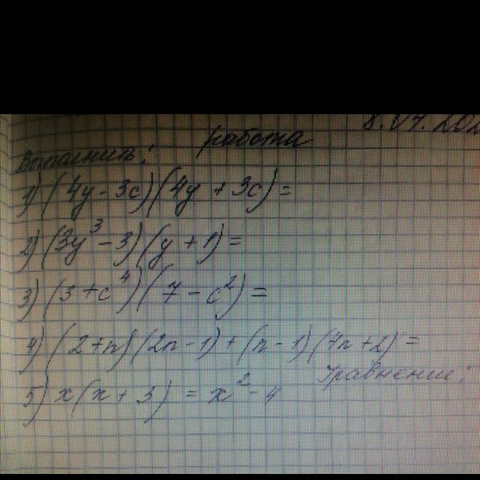 8.04.202
работа
Выполнить:
1) (4y - 3c)(4y + 3c) =
2) (3y³ - 3)(y + 1) =
3) (3 + c⁴)(7 - c²) =
4) (2 + n)(2n - 1) + (n - 1)(4n + 2) =
Уравнение:
5) x(x + 3) = x² - 4